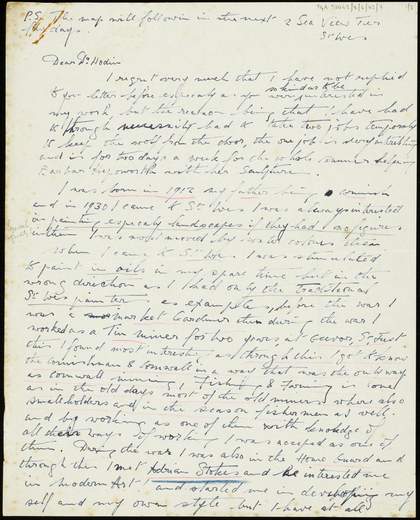 P.S. The map will follow in the next
few days.
2 Sea View Tce
St Ives
Dear Dr Hodin
I regret very much that I have not replied
to your letter before especially as you
so kind as to be
very interested in
my work, but the reason being that I have had
to through necessity had to take two jobs temporaly
to keep the wolf from the door, the one job is very interesting
and is for two days a week for the whole summer helping
Barbara Hepworth with her Sculpture.
I was born in 1912 my father being a
and in 1930 I came to St Ives I was always interested
in painting especialy landscapes if they had no figures
in them I was most moved by water colours then
When I came to St Ives I was stimulated
to paint in oils in my spare time but in the
wrong direction as I had only the traditional
St Ives painter as example, before the war I
was a market Gardener then during the war I
worked as a Tin miner for two years at Geevor, St Just
this I found most interesting as through this I got to know
the Cornishman & Cornwall in a way that was the only way
as cornwall mining, fishing & farming is one
as in the old days most of the old miners where also
smallholders and in the season fishermen as well
and by working as one of them with knowledge of
all their ways of working I was accepted as one of
them. During the war I was also in the Home Guard and
through this I met Adrian Stokes and he interested me
in Modern Art and started me in developing my
self and my own style but I have at all